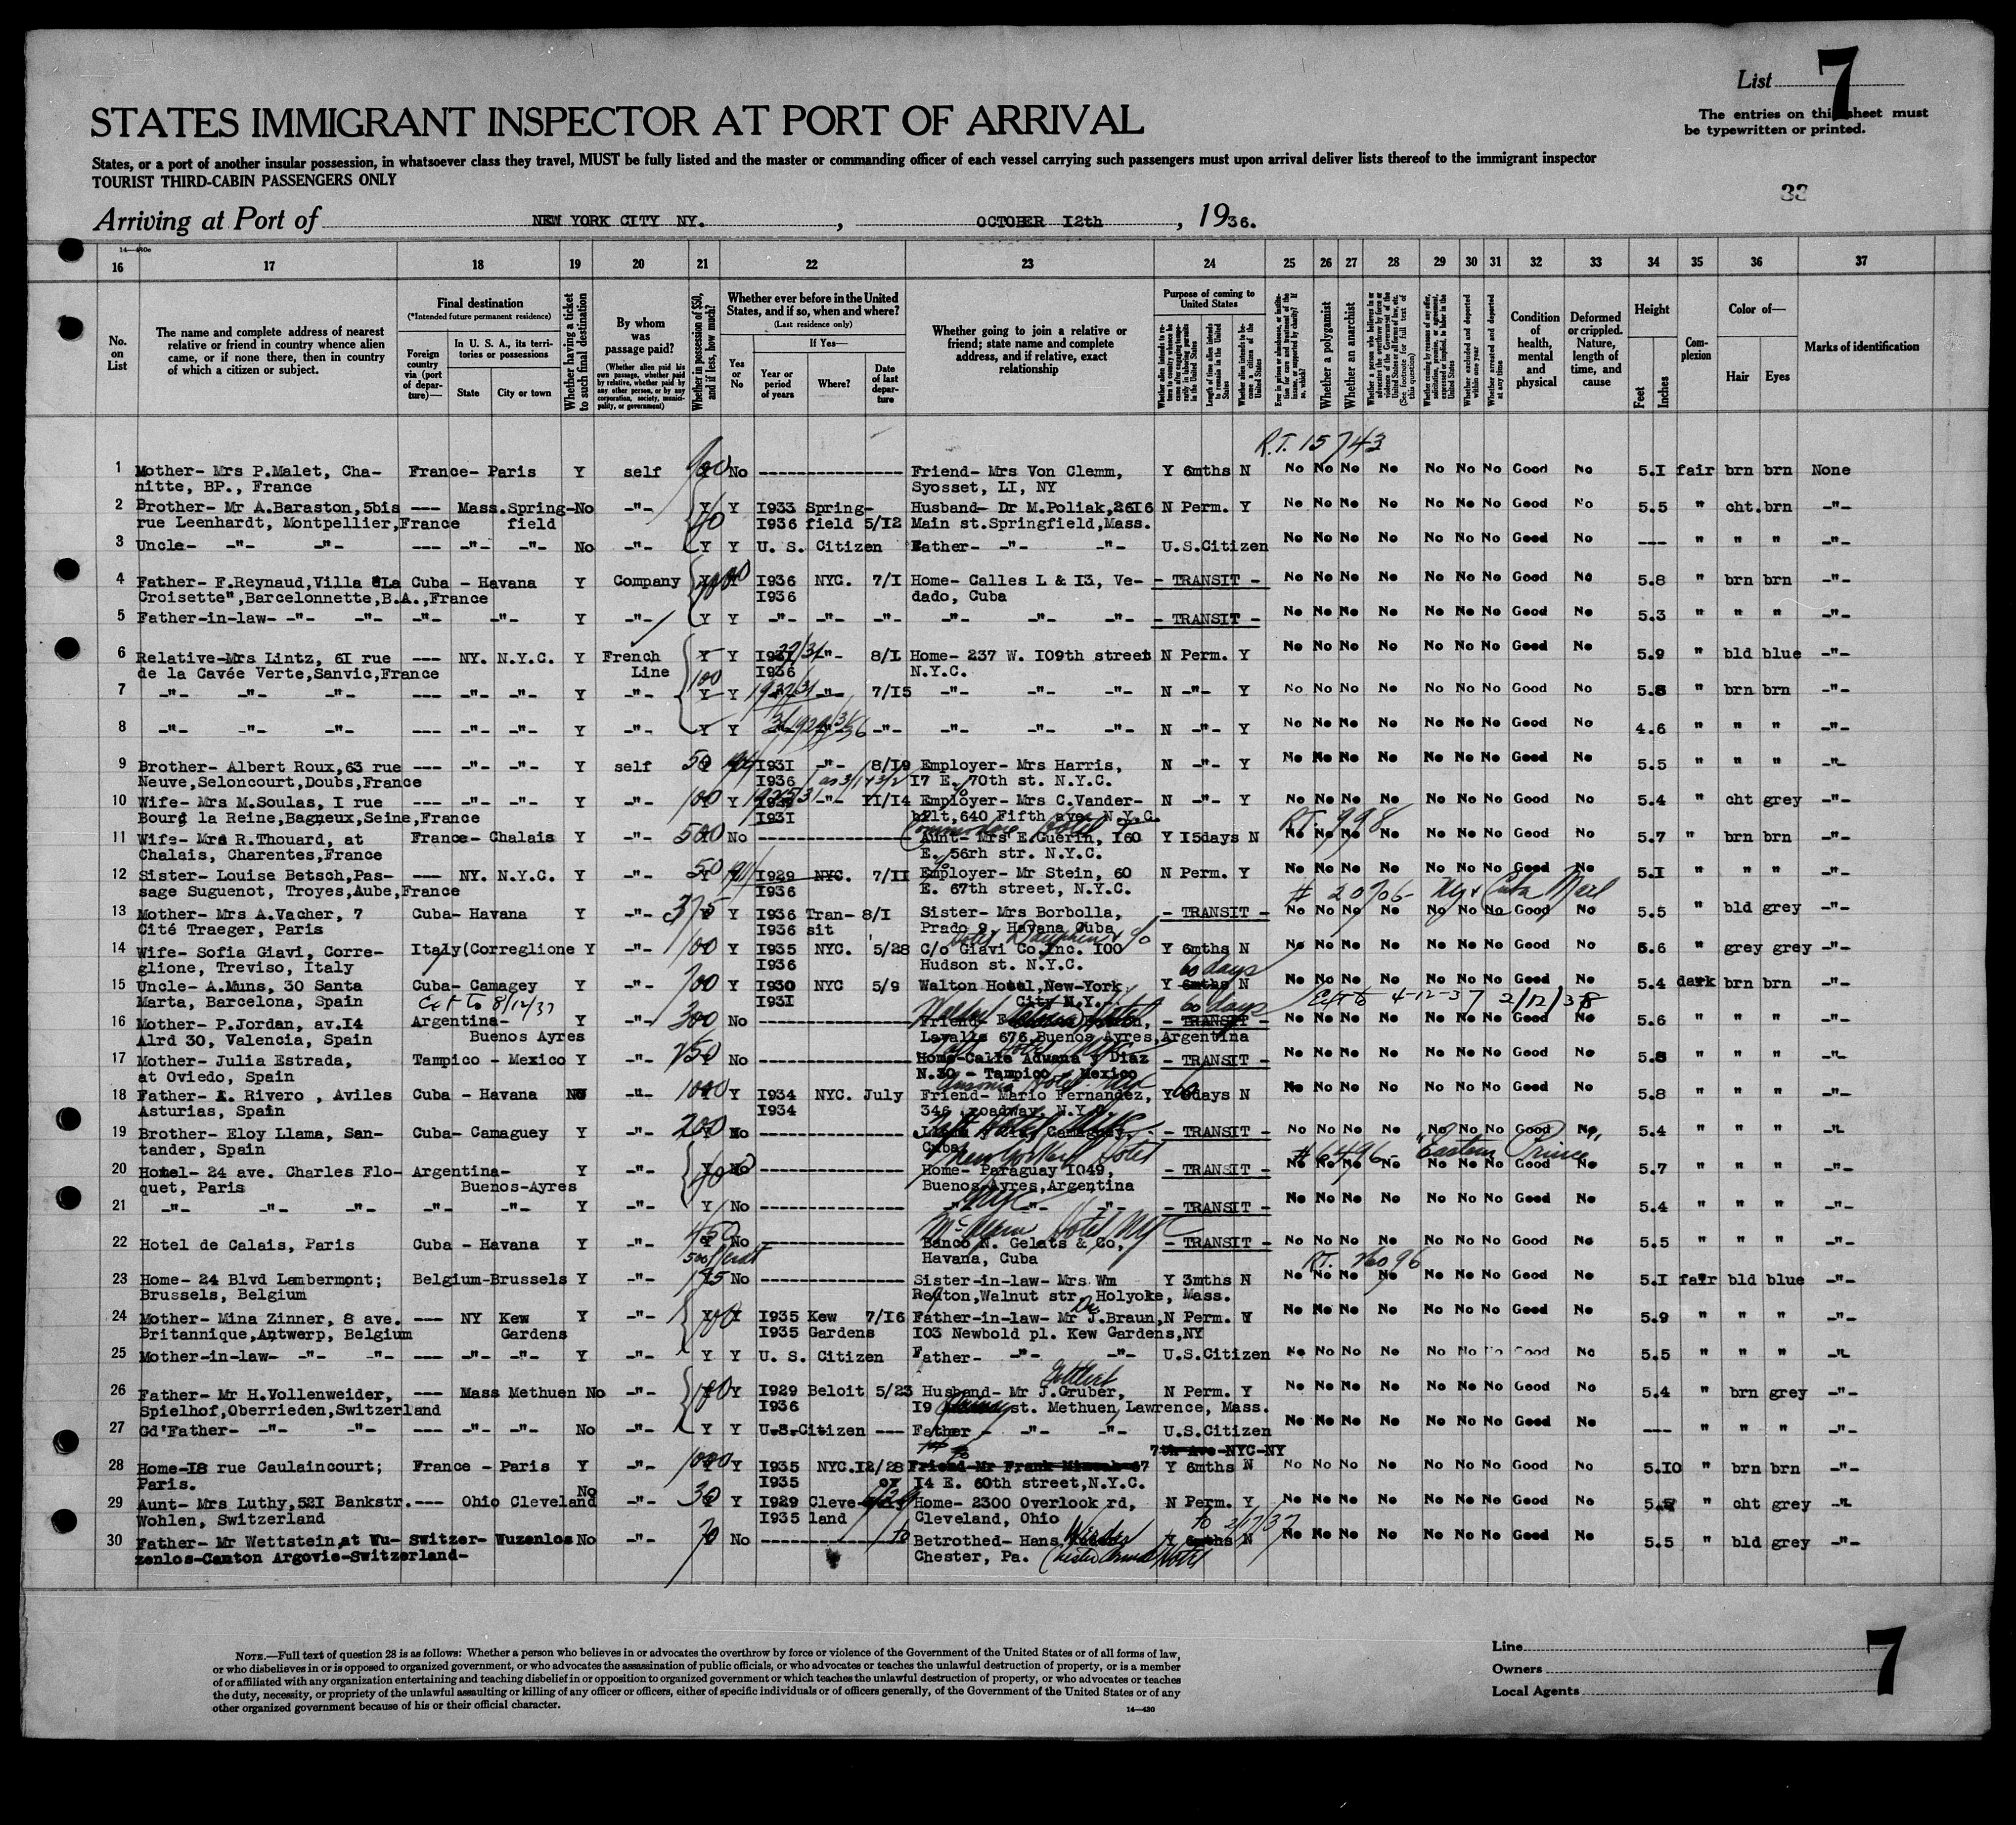 List 7
STATES IMMIGRANT INSPECTOR AT PORT OF ARRIVAL
The entries on this sheet must
be typewritten or printed.
States, or a port of another insular possession, in whatsoever class they travel, MUST be fully listed and the master or commanding officer of each vessel carrying such passengers must upon arrival deliver lists thereof to the immigrant inspector
TOURIST THIRD-CABIN PASSENGERS ONLY
33
Arriving at Port of NEW YORK CITY NY. , OCTOBER 12th , 1936.
14—430e
16 17 18 19 20 21 22 23 24 25 26 27 28 29 30 31 32 33 34 35 36 37
No. on List
The name and complete address of nearest relative or friend in country whence alien came, or if none there, then in country of which a citizen or subject.
Final destination
(*Intended future permanent residence)
Foreign country via (port of departure)—
In U. S. A., its territories or possessions
State
City or town
Whether having a ticket to such final destination
By whom was passage paid?
(Whether alien paid his own passage, whether paid by relative, whether paid by any other person, or by any corporation, society, municipality, or government)
Whether in possession of $50, and if less, how much?
Whether ever before in the United States, and if so, when and where?
(Last residence only)
Yes or No
If Yes—
Year or period of years
Where?
Date of last departure
Whether going to join a relative or friend; state name and complete address, and if relative, exact relationship
Purpose of coming to United States
Length of time alien intends to remain in the United States
Whether alien intends to become a citizen of the United States
Whether a polygamist
Whether an anarchist
Whether excluded and deported within one year
Whether arrested and deported at any time
Condition of health, mental and physical
Deformed or crippled. Nature, length of time, and cause
Height
Feet
Inches
Complexion
Color of—
Hair
Eyes
Marks of identification
R.T. 15743
1 Mother- Mrs P.Malet, Cha- France- Paris Y self No ---------------- Friend- Mrs Von Clemm, Y 6mths N No No No No No No No Good No 5.I fair brn brn None
nitte, BP., France Syosset, LI, NY
2 Brother- Mr A.Baraston,5bis --- Mass.Spring-No -"- Y Y I933 Spring- Husband- Dr M.Poliak,26I6 N Perm. Y No No No No No No No Good No 5.5 " cht. brn -"-
rue Leenhardt, Montpellier,France field 40 I936 field 5/I2 Main st.Springfield,Mass.
3 Uncle- -"- -"- --- -"- -"- No -"- Y Y U. S. Citizen Father- -"- -"- U.S.Citizen No No No No No No No Good No --- " " " -"-
4 Father- F.Reynaud,Villa "La Cuba - Havana Y Company Y I936 NYC. 7/I Home- Calles L & I3, Ve- - TRANSIT - No No No No No No No Good No 5.8 " brn brn -"-
Croisette",Barcelonnette,B.A.,France I936 dado, Cuba
5 Father-in-law- -"- -"- -"- -"- Y -"- Y Y -"- -"- -"- -"- -"- -"- - TRANSIT - No No No No No No No Good No 5.3 " " " -"-
6 Relative-Mrs Lintz, 6I rue --- NY. N.Y.C. Y French Y Y -"- 8/I Home- 237 W. I09th street N Perm. Y No No No No No No No Good No 5.9 " bld blue -"-
de la Cavée Verte,Sanvic,France Line 100 I936 N.Y.C.
7 -"- -"- -"- --- -"- -"- Y -"- Y Y -"- 7/I5 -"- -"- -"- N -"- Y No No No No No No No Good No 5.8 " brn brn -"-
8 -"- -"- -"- --- -"- -"- Y -"- Y Y -"- -"- -"- -"- N -"- Y No No No No No No No Good No 4.6 " " " -"-
9 Brother- Albert Roux,63 rue --- -"- -"- Y self 50 I93I -"- 8/I9 Employer- Mrs Harris, N -"- Y No No No No No No No Good No 5.5 " " " -"-
Neuve,Seloncourt,Doubs,France I936 I7 E. 70th st. N.Y.C.
10 Wife- Mrs M.Soulas, I rue --- -"- -"- Y -"- 100 Y -"- II/I4 Employer- Mrs C.Vander- N -"- Y No No No No No No No Good No 5.4 " cht grey -"-
Bourg la Reine,Bagneux,Seine,France I93I bilt,640 Fifth ave. N.Y.C.
Commodore Hotel RT. 998
11 Wife- Mrs R.Thouard, at France- Chalais Y -"- 500 No ---------------- Aunt- Mrs E.Guerin, I60 Y I5days N No No No No No No No Good No 5.7 " brn brn -"-
Chalais, Charentes,France E. 56rh str. N.Y.C.
12 Sister- Louise Betsch,Pas- --- NY. N.Y.C. Y -"- 50 I929 NYC. 7/II Employer- Mr Stein, 60 N Perm. Y No No No No No No No Good No 5.I " " " -"-
sage Suguenot, Troyes,Aube,France I936 E. 67th street, N.Y.C.
# 20706- Ny & Cuba Mail
13 Mother- Mrs A.Vacher, 7 Cuba- Havana Y -"- 375 Y I936 Tran- 8/I Sister- Mrs Borbolla, - TRANSIT - No No No No No No No Good No 5.5 " bld grey -"-
Cité Traeger, Paris I936 sit Prado 9, Havana Cuba
14 Wife- Sofia Giavi, Corre- Italy(Correglione Y -"- 100 Y I935 NYC. 5/28 C/o Giavi Co,Inc. I00 Y 6mths N No No No No No No No Good No 5.6 " grey grey -"-
glione, Treviso, Italy I936 Hudson st. N.Y.C.
60 days
15 Uncle- A.Muns, 30 Santa Cuba- Camagey Y -"- 700 Y I930 NYC 5/9 Walton Hotel,New-York Y 6mths N No No No No No No No Good No 5.4 dark brn brn -"-
Marta, Barcelona, Spain Ext to 8/12/37 I93I City N.Y. 60 days Ext to 4-12-37 2/12/38
16 Mother- P.Jordan, av.I4 Argentina- Y -"- 300 No ---------------- - TRANSIT - No No No No No No No Good No 5.6 " " " -"-
Alrd 30, Valencia, Spain Buenos Ayres Lavalle 676,Buenos Ayres,Argentina
17 Mother- Julia Estrada, Tampico - Mexico Y -"- No ---------------- Home-Calle Aduana y Diaz - TRANSIT - No No No No No No No Good No 5.8 " " " -"-
at Oviedo, Spain N.30 - Tampico - Mexico
Ansonia Hotel NYC
18 Father- A. Rivero , Aviles Cuba - Havana No -"- 1000 Y I934 NYC. July Friend- Mario Fernandez, Y 60days N No No No No No No No Good No 5.8 " " " -"-
Asturias, Spain I934 346 roadway, N.Y.C.
19 Brother- Eloy Llama, San- Cuba- Camaguey Y -"- 200 No ---------------- Camaguey, - TRANSIT - No No No No No No No Good No 5.4 " " " -"-
tander, Spain Cuba
New Yorker Hotel # 6496- "Eastern Prince"
20 Hotel- 24 ave. Charles Flo- Argentina- Y -"- Y No ---------------- Home- Paraguay I049, - TRANSIT - No No No No No No No Good No 5.7 " " " -"-
quet, Paris Buenos-Ayres Buenos-Ayres,Argentina
21 -"- -"- -"- -"- -"- Y -"- Y No ---------------- -"- -"- -"- - TRANSIT - No No No No No No No Good No 5.4 " " " -"-
McAlpin Hotel NYC
22 Hotel de Calais, Paris Cuba - Havana Y -"- 450 No ---------------- Banco N. Gelats & Co, - TRANSIT - No No No No No No No Good No 5.5 " " " -"-
Havana, Cuba RT. 26096
23 Home- 24 Blvd Lambermont; Belgium-Brussels Y -"- No ---------------- Sister-in-law- Mrs Wm Y 3mths N No No No No No No No Good No 5.I fair bld blue -"-
Brussels, Belgium Redton,Walnut str, Holyoke, Mass.
24 Mother- Mina Zinner, 8 ave. --- NY Kew Y -"- 100 Y I935 Kew 7/I6 Father-in-law- Mr J.Braun, N Perm. Y No No No No No No No Good No 5.9 " " " -"-
Britannique,Antwerp, Belgium Gardens I935 Gardens I03 Newbold pl. Kew Gardens,NY
25 Mother-in-law- -"- -"- --- -"- -"- Y -"- Y Y U. S. Citizen Father- -"- -"- U.S.Citizen No No No No No No No Good No 5.5 " " " -"-
26 Father- Mr H.Vollenweider, --- Mass Methuen No -"- 100 Y I929 Beloit 5/23 Husband- Mr J.Gruber, N Perm. Y No No No No No No No Good No 5.4 " brn grey -"-
Spielhof,Oberrieden,Switzerland I936 I9 st. Methuen, Lawrence, Mass.
27 Gd'Father- -"- -"- --- -"- -"- No -"- Y Y U.S.Citizen --- Father - -"- -"- U.S.Citizen No No No No No No No Good No --- " " " -"-
7th Ave NYC-NY
28 Home-I8 rue Caulaincourt; France - Paris Y -"- 1000 Y I935 NYC.I2/28 Friend-Mr Frank Y 6mths N No No No No No No No Good No 5.I0 " brn brn -"-
Paris. I935 I4 E. 60th street,N.Y.C.
29 Aunt- Mrs Luthy,52I Bankstr.--- Ohio Cleveland No -"- 30 Y I929 Cleve- Home- 2300 Overlook rd, N Perm. Y No No No No No No No Good No " cht grey -"-
Wohlen, Switzerland I935 land Cleveland, Ohio
to 2/17/37
30 Father- Mr Wettstein,at Wu- Switzer- Wuzenlos No -"- 70 No ---------------- Betrothed- Hans Y 6mths N No No No No No No No Good No 5.5 " bld grey -"-
zenlos-Canton Argovie-Switzerland- Chester, Pa.
NOTE.—Full text of question 28 is as follows: Whether a person who believes in or advocates the overthrow by force or violence of the Government of the United States or of all forms of law,
or who disbelieves in or is opposed to organized government, or who advocates the assassination of public officials, or who advocates or teaches the unlawful destruction of property, or is a member
of or affiliated with any organization entertaining and teaching disbelief in or opposition to organized government or which teaches the unlawful destruction of property, or who advocates or teaches
the duty, necessity, or propriety of the unlawful assaulting or killing of any officer or officers, either of specific individuals or of officers generally, of the Government of the United States or of any
other organized government because of his or their official character.
14—430
Line
Owners
Local Agents
7